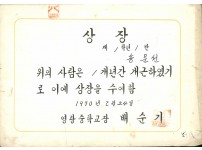 상장
제 1 학년 1 반
송 운 선
위의 사람은 1개년간 개근하였기
로 이에 상장을 수여함
1990년 2월 20일
영광중학교장 배순기